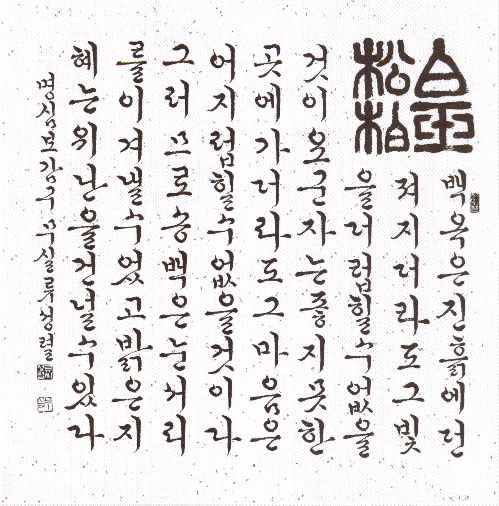 白玉
松柏
백옥은진흙에던
져지더라도그빛
을더럽힐수없을
것이오군자는좋지못한
곳에가더라도그마음은
어지럽힐수없을것이다
그러므로송백은눈서리
를이겨낼수있고밝은지
혜는위난을건널수있다
명심보감구 무실류성렬